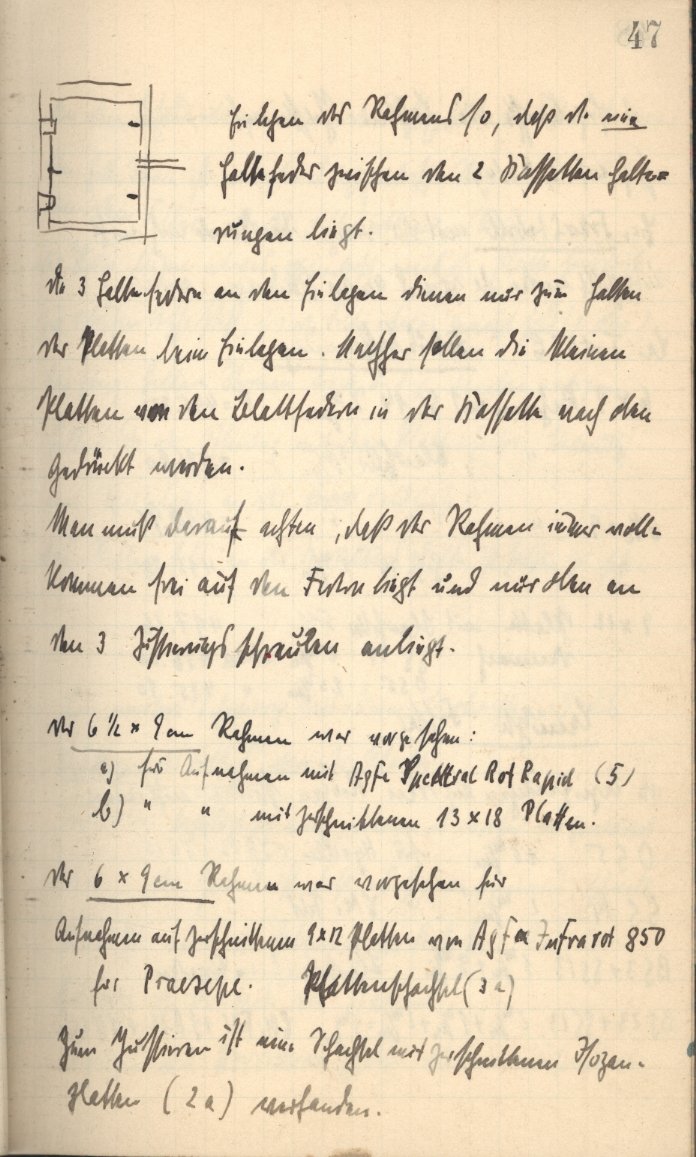 47
Einlegen des Rahmens so, daß die eine
Haltefeder zwischen den 2 Kassetten Halte=
rungen liegt.
Die 3 Haltefedern an den Einlegen dienen nur zum Halten
der Platten beim Einlegen. Nachher sollen die kleinen
Platten von den Blattfedern in der Kassette nach oben
gedrückt werden.
Man muß darauf achten, daß der Rahmen immer voll-
kommen frei auf den Federn liegt und nur oben an
den 3 Justierungsschrauben anliegt.
Der 6 ½ × 9 cm Rahmen war vorgesehen:
a) für Aufnahmen mit Agfa Spektral Rot Rapid (5)
b) " " mit zerschnittenen 13 × 18 Platten.
Der 6 × 9 cm Rahmen war vorgesehen für
Aufnahmen auf zerschnittenen 9×12 Platten von Agfa Infrarot 850
für Praesepe. Plattenschachtel (3a)
Zum Justieren ist eine Schachtel mit zerschnittenen Isozen-
platten (2a) vorhanden.